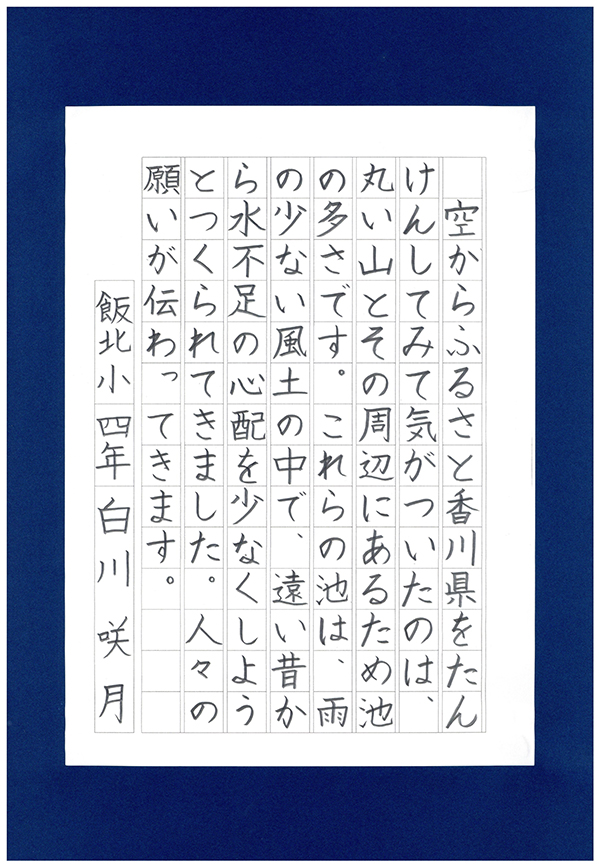 空からふるさと香川県をたん
けんしてみて気がついたのは、
丸い山とその周辺にあるため池
の多さです。これらの池は、雨
の少ない風土の中で、遠い昔か
ら水不足の心配を少なくしよう
とつくられてきました。人々の
願いが伝わってきます。
飯北小 四年 白川 咲月